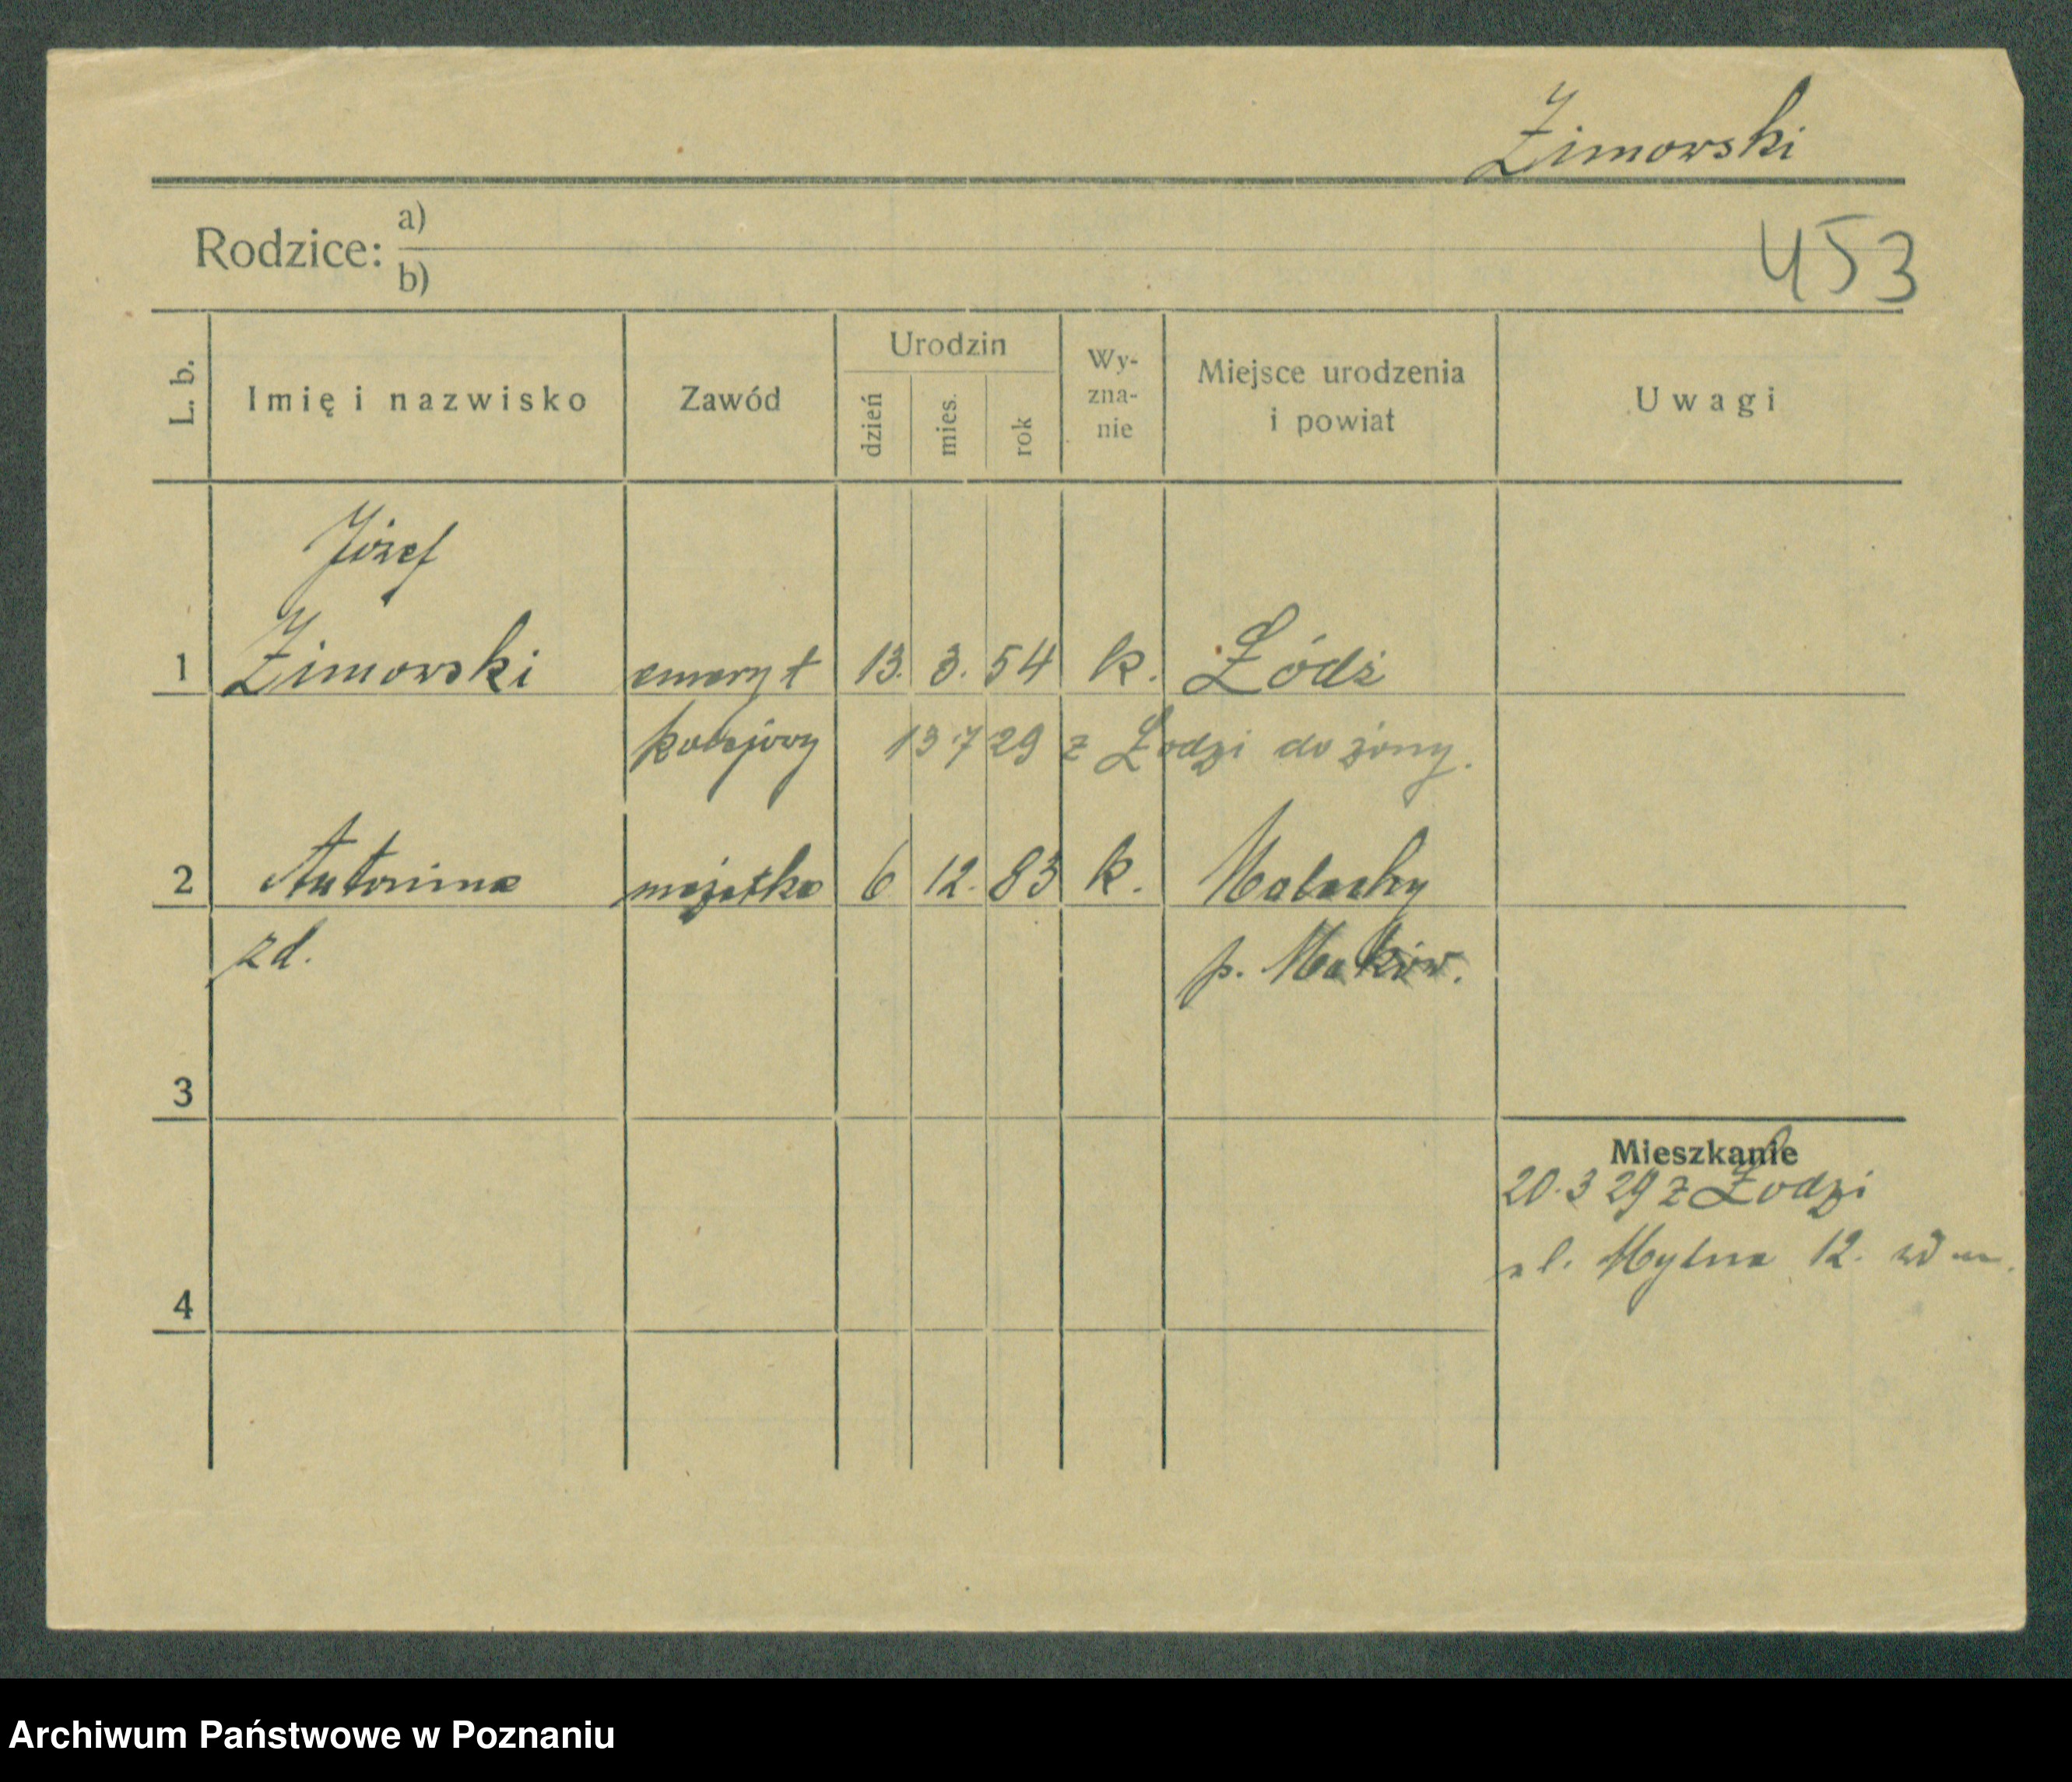 Zimowski
Rodzice: a)
b)
453
L. b. Imię i nazwisko Zawód Urodzin dzień mies. rok Wy-zna-nie Miejsce urodzenia i powiat Uwagi
Józef
1 Zimowski emeryt 13. 3. 54 k. Łódź
kolejowy 13 7 29 z Łodzi do żony.
2 Antonina mężatka 6 12. 83 k. Malachy
zd. p. Maków.
3
Mieszkanie
20. 3 29 z Łodzi
ul. Mylna 12.
4
Archiwum Państwowe w Poznaniu